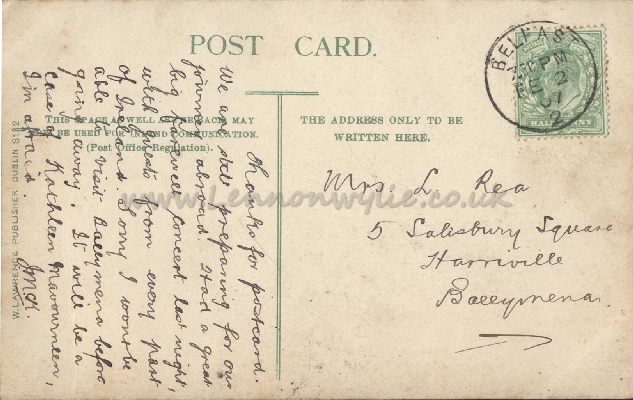 POST CARD.
THIS SPACE AS WELL AS THE BACK MAY
BE USED FOR INLAND COMMUNICATION.
(Post Office Regulation).
THE ADDRESS ONLY TO BE
WRITTEN HERE.
W. LAWRENCE, PUBLISHER, DUBLIN
BELFAST
PM
2
HALFPENNY
Thanks for postcard.
We are still preparing for our
journey abroad. Had a great
big farewell concert last night,
with guests from every part
of Ireland. Sorry I wont be
able to visit Ballymena before
going away. It will be a
case of Kathleen Mavourneen,
I'm afraid
Mrs L. Rea
5 Salisbury Square
Harriville
Ballymena.
www.Lennonwylie.co.uk